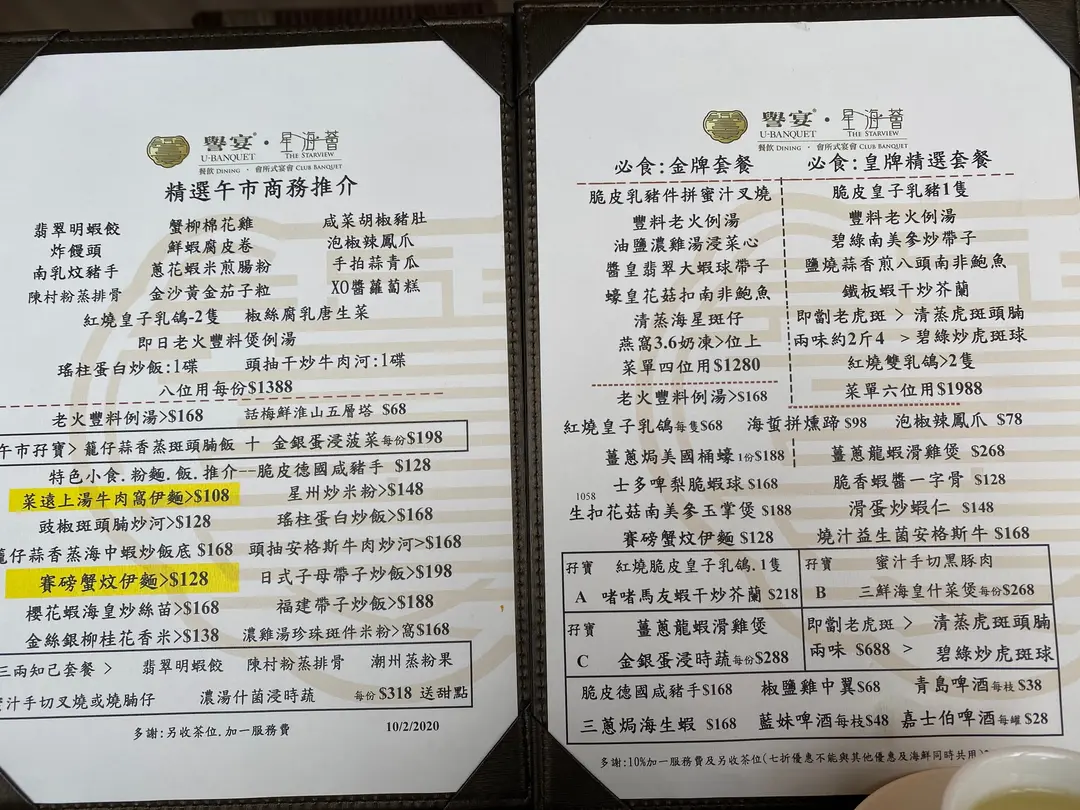 譽宴® · 星海薈
U-BANQUET THE STARVIEW
餐飲 DINING · 會所式宴會 CLUB BANQUET
精選午市商務推介
翡翠明蝦餃 蟹柳棉花雞 咸菜胡椒豬肚
炸饅頭 鮮蝦腐皮卷 泡椒辣鳳爪
南乳炆豬手 蔥花蝦米煎腸粉 手拍蒜青瓜
陳村粉蒸排骨 金沙黃金茄子粒 XO醬蘿蔔糕
紅燒皇子乳鴿-2隻 椒絲腐乳唐生菜
即日老火豐料煲例湯
瑤柱蛋白炒飯:1碟 頭抽干炒牛肉河:1碟
八位用每份$1388
老火豐料例湯>$168 話梅鮮淮山五層塔 $68
午市孖寶> 籠仔蒜香蒸斑頭腩飯 十 金銀蛋浸菠菜每份$198
特色小食.粉麵.飯.推介--脆皮德國咸豬手 $128
菜遠上湯牛肉窩伊麵>$108 星州炒米粉>$148
豉椒斑頭腩炒河>$128 瑤柱蛋白炒飯>$168
籠仔蒜香蒸海中蝦炒飯底 $168 頭抽安格斯牛肉炒河>$168
賽磅蟹炆伊麵>$128 日式子母帶子炒飯>$198
櫻花蝦海皇炒絲苗>$168 福建帶子炒飯>$188
金絲銀柳桂花香米>$138 濃雞湯珍珠斑件米粉>窩$168
三兩知己套餐 > 翡翠明蝦餃 陳村粉蒸排骨 潮州蒸粉果
蜜汁手切叉燒或燒腩仔 濃湯什菌浸時蔬 每份 $318 送甜點
多謝:另收茶位.加一服務費 10/2/2020
譽宴® · 星海薈
U-BANQUET THE STARVIEW
餐飲 DINING · 會所式宴會 CLUB BANQUET
必食:金牌套餐 必食:皇牌精選套餐
脆皮乳豬件拼蜜汁叉燒 脆皮皇子乳豬1隻
豐料老火例湯 豐料老火例湯
油鹽濃雞湯浸菜心 碧綠南美參炒帶子
醬皇翡翠大蝦球帶子 鹽燒蒜香煎八頭南非鮑魚
蠔皇花菇扣南非鮑魚 鐵板蝦干炒芥蘭
清蒸海星斑仔 即劏老虎斑 > 清蒸虎斑頭腩
燕窩3.6奶凍>位上 兩味約2斤4 > 碧綠炒虎斑球
菜單四位用$1280 紅燒雙乳鴿>2隻
老火豐料例湯>$168 菜單六位用$1988
紅燒皇子乳鴿每隻$68 海蜇拼燻蹄 $98 泡椒辣鳳爪 $78
薑蔥焗美國桶蠔1份$188 薑蔥龍蝦滑雞煲 $268
士多啤梨脆蝦球 $168 脆香蝦醬一字骨 $128
1058
生扣花菇南美參玉掌煲 $188 滑蛋炒蝦仁 $148
賽磅蟹炆伊麵 $128 燒汁益生菌安格斯牛 $168
孖寶 紅燒脆皮皇子乳鴿.1隻 孖寶 蜜汁手切黑豚肉
A 啫啫馬友蝦干炒芥蘭 $218 B 三鮮海皇什菜煲每份$268
孖寶 薑蔥龍蝦滑雞煲 即劏老虎斑 > 清蒸虎斑頭腩
C 金銀蛋浸時蔬每份$288 兩味 $688 > 碧綠炒虎斑球
脆皮德國咸豬手$168 椒鹽雞中翼$68 青島啤酒每枝$38
三蔥焗海生蝦 $168 藍妹啤酒每枝$48 嘉士伯啤酒每罐$28
多謝:10%加一服務費及另收茶位(七折優惠不能與其他優惠及海鮮同時共用)